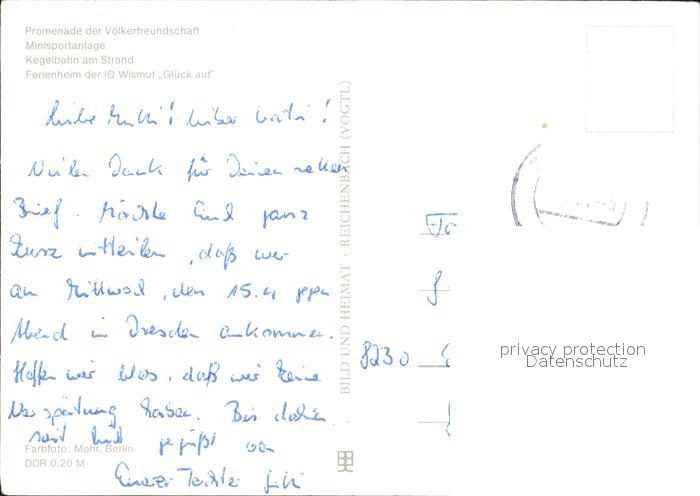 Promenade der Völkerfreundschaft
Minisportanlage
Kegelbahn am Strand
Ferienheim der IG Wismut „Glück auf"
Liebe Mutti! Lieber Vati!
Vielen Dank für Deinen netten
Brief. Möchte Euch ganz
kurz mitteilen, daß wir
am Mittwoch, den 15.4 gegen
Abend in Dresden ankommen.
Hoffen wir blos, daß wir keine
Verspätung haben. Bis dahin
seid gegrüßt von
Eurer Tochter
Farbfoto: Mohr, Berlin
DDR 0,20 M
BILD UND HEIMAT · REICHENBACH (VOGTL)
8230
privacy protection
Datenschutz